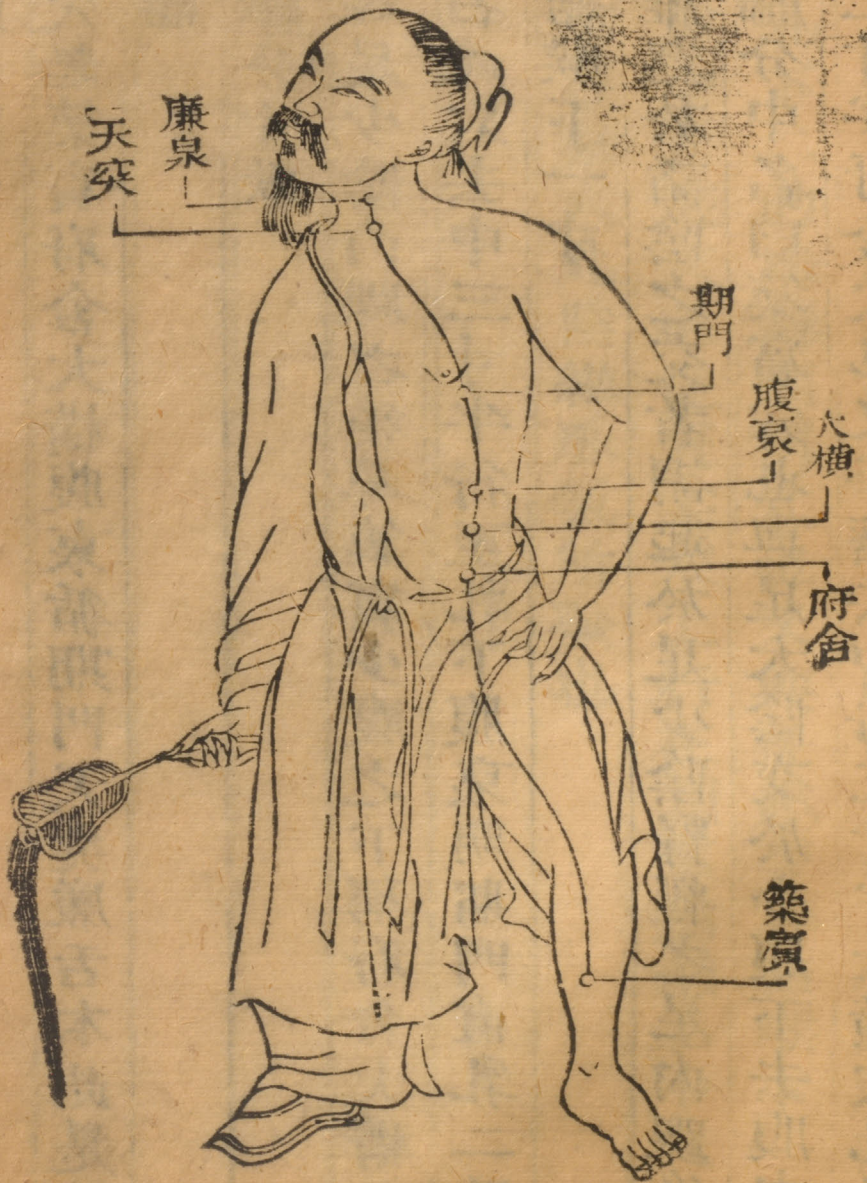 廉泉
天突
期門
腹哀
大橫
府舍
築賓